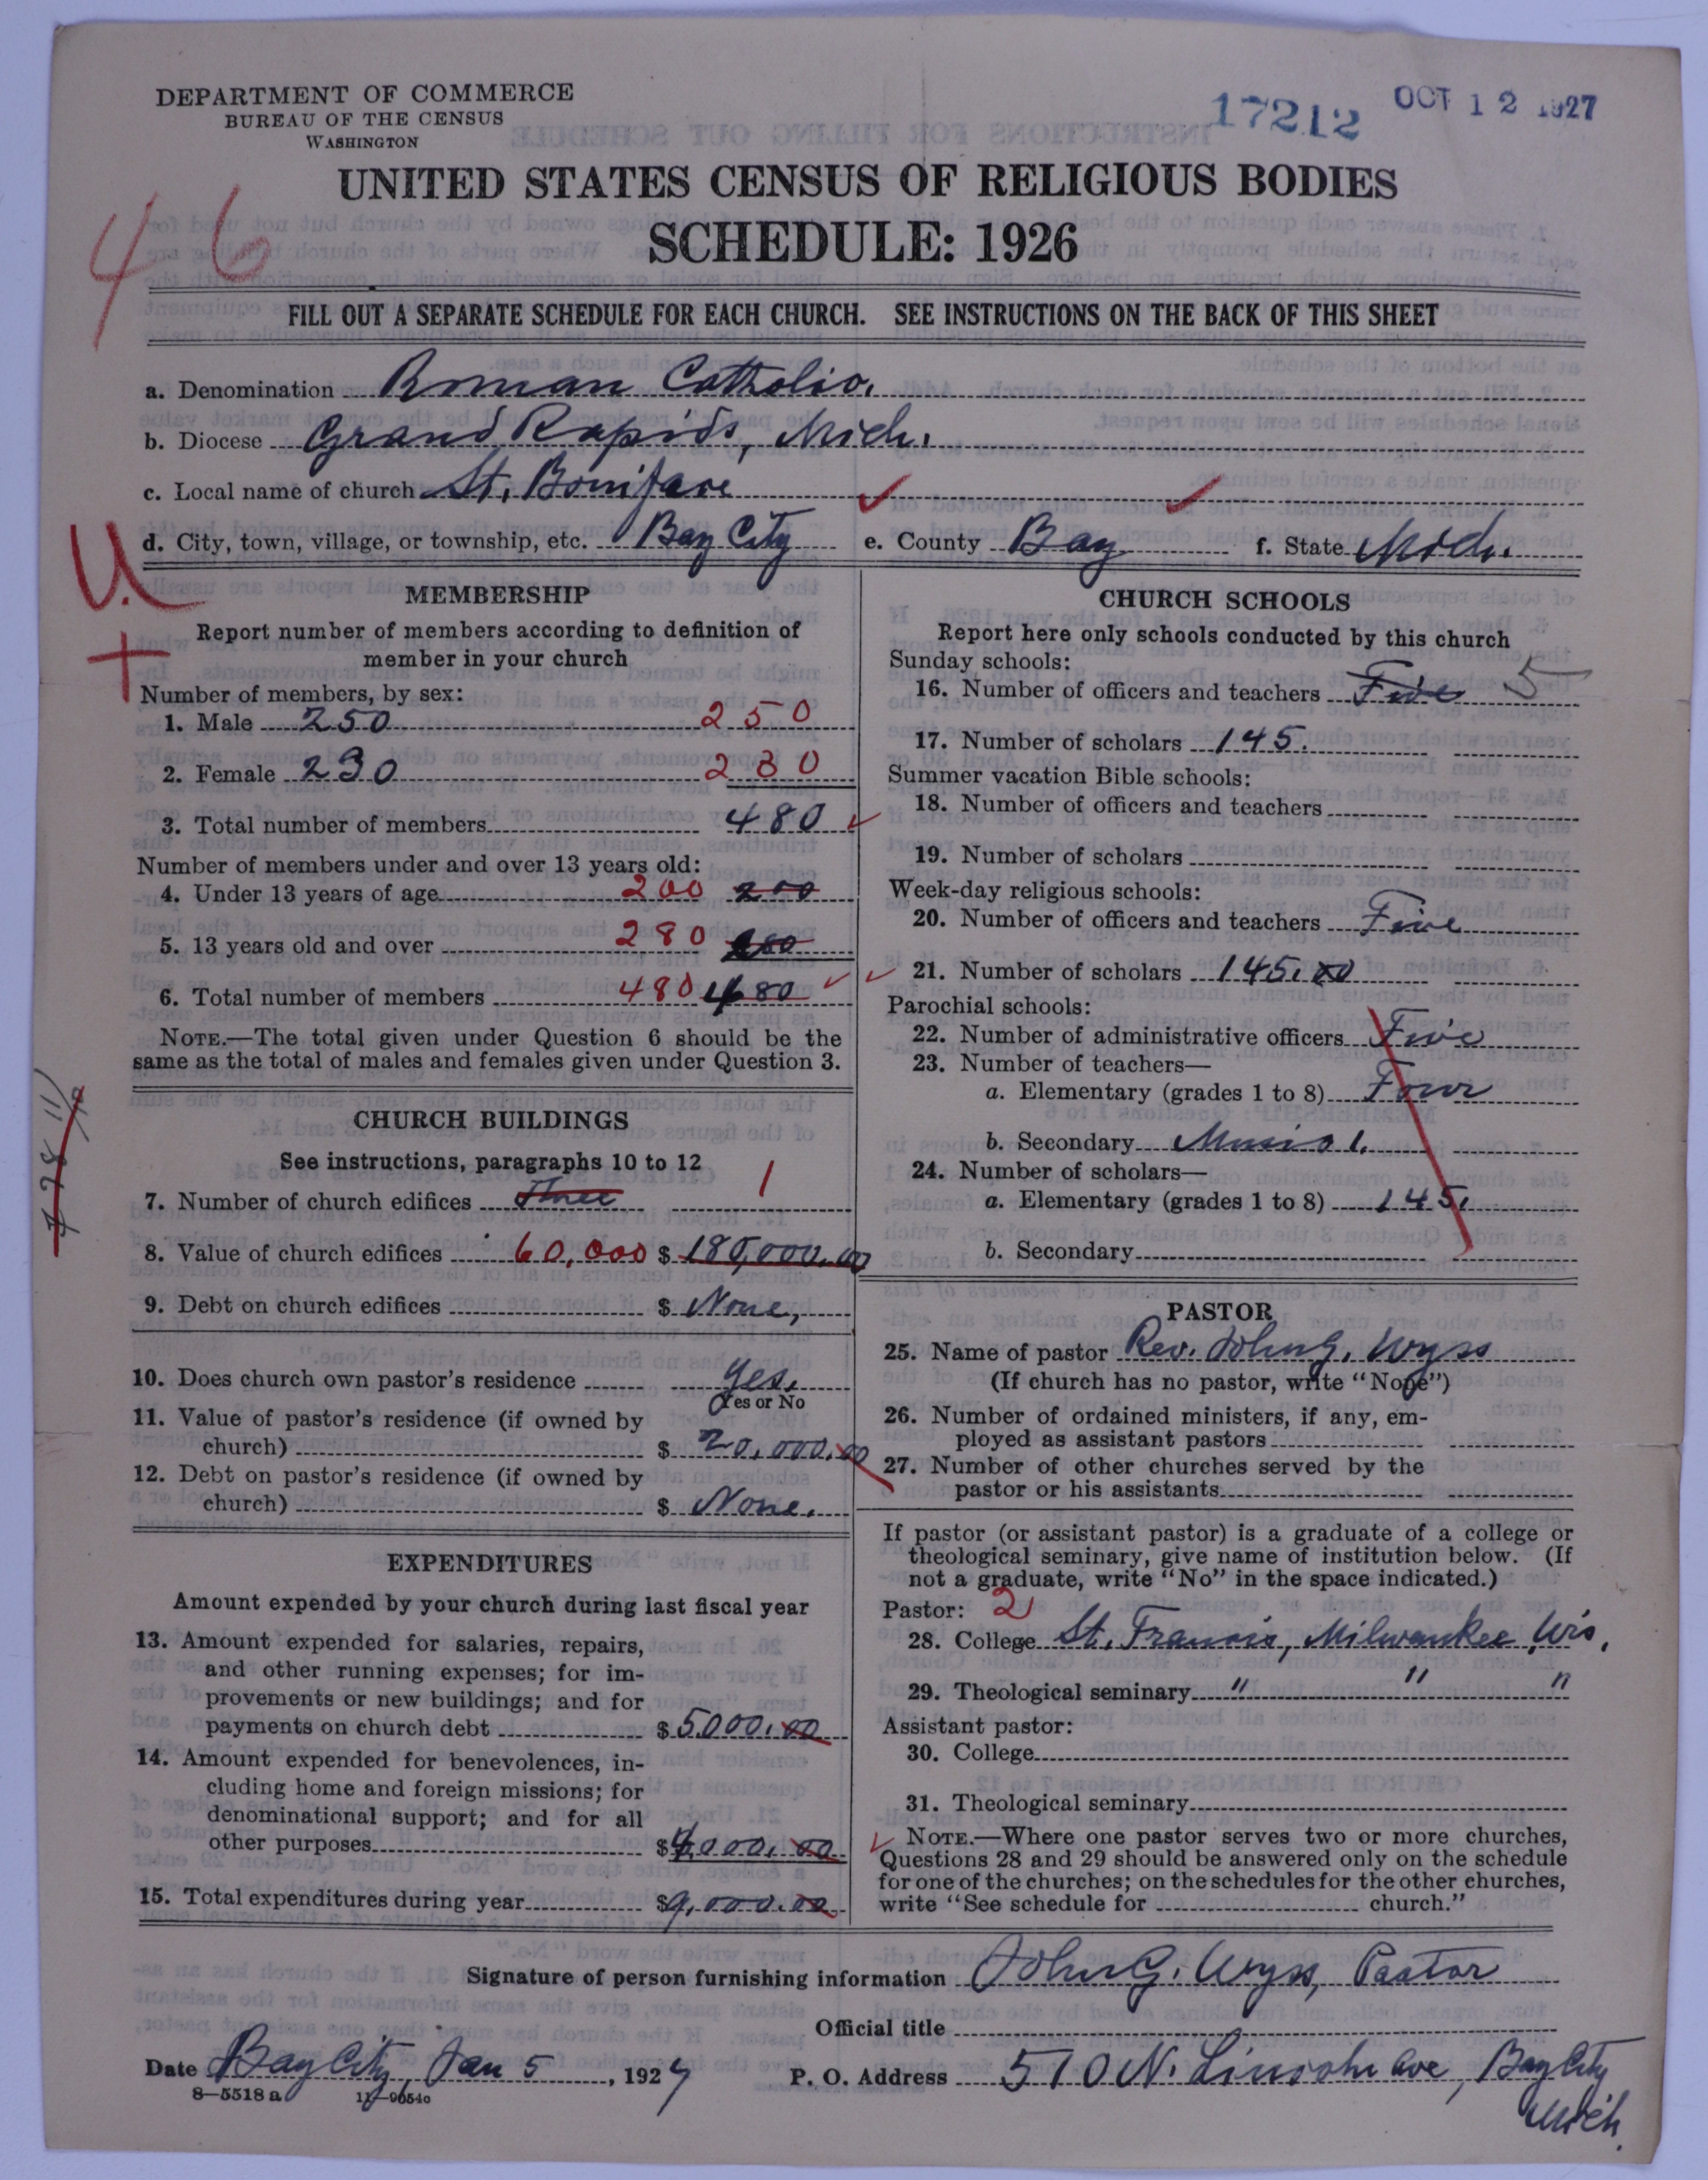 DEPARTMENT OF COMMERCE
BUREAU OF THE CENSUS
WASHINGTON
17212 OCT 12 1927
UNITED STATES CENSUS OF RELIGIOUS BODIES
SCHEDULE: 1926
46
FILL OUT A SEPARATE SCHEDULE FOR EACH CHURCH. SEE INSTRUCTIONS ON THE BACK OF THIS SHEET
a. Denomination Roman Catholic.
b. Diocese Grand Rapids, Mich.
c. Local name of church St. Boniface
d. City, town, village, or township, etc. Bay City e. County Bay f. State Mich.
U.
MEMBERSHIP
Report number of members according to definition of
member in your church
Number of members, by sex:
1. Male 250 250
2. Female 230 230
3. Total number of members 480
Number of members under and over 13 years old:
4. Under 13 years of age 200 200
5. 13 years old and over 280 280
6. Total number of members 480 480
NOTE.—The total given under Question 6 should be the
same as the total of males and females given under Question 3.
CHURCH BUILDINGS
See instructions, paragraphs 10 to 12
7. Number of church edifices Three 1
8. Value of church edifices 60,000 $ 180,000.00
9. Debt on church edifices $ None,
10. Does church own pastor's residence Yes.
Yes or No
11. Value of pastor's residence (if owned by
church) $ 20,000.00
12. Debt on pastor's residence (if owned by
church) $ None.
EXPENDITURES
Amount expended by your church during last fiscal year
13. Amount expended for salaries, repairs,
and other running expenses; for im-
provements or new buildings; and for
payments on church debt $ 5000.00
14. Amount expended for benevolences, in-
cluding home and foreign missions; for
denominational support; and for all
other purposes $ 4000.00
15. Total expenditures during year $ 9,000.00
CHURCH SCHOOLS
Report here only schools conducted by this church
Sunday schools:
16. Number of officers and teachers Five 5
17. Number of scholars 145.
Summer vacation Bible schools:
18. Number of officers and teachers
19. Number of scholars
Week-day religious schools:
20. Number of officers and teachers Five
21. Number of scholars 145.00
Parochial schools:
22. Number of administrative officers Five
23. Number of teachers—
a. Elementary (grades 1 to 8) Four
b. Secondary Music 1.
24. Number of scholars—
a. Elementary (grades 1 to 8) 145.
b. Secondary
PASTOR
25. Name of pastor Rev. John G. Wyss
(If church has no pastor, write "None")
26. Number of ordained ministers, if any, em-
ployed as assistant pastors
27. Number of other churches served by the
pastor or his assistants
If pastor (or assistant pastor) is a graduate of a college or
theological seminary, give name of institution below. (If
not a graduate, write "No" in the space indicated.)
Pastor: 2
28. College St. Francis, Milwaukee, Wis.
29. Theological seminary " " "
Assistant pastor:
30. College
31. Theological seminary
NOTE.—Where one pastor serves two or more churches,
Questions 28 and 29 should be answered only on the schedule
for one of the churches; on the schedules for the other churches,
write "See schedule for church."
Signature of person furnishing information John G. Wyss, Pastor
Official title
Date Bay City, Jan 5, 1927 P. O. Address 510 N. Lincoln Ave, Bay City
Mich.
8—5518a